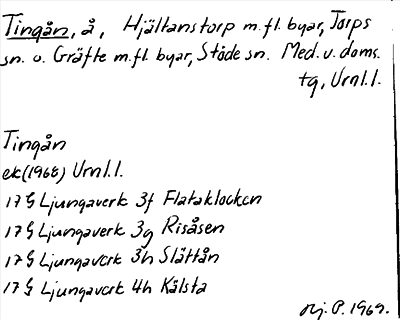 Tingån, å, Hjältanstorp m.fl. byar, Torps
sn. o. Gräfte m.fl. byar, Stöde sn. Med. v. doms.
tg, Vrnl.l.
Tingån
ek(1968) Vrnl.l.
17 G Ljungaverk 3f Flataklocken
17 G Ljungaverk 3g Risåsen
17 G Ljungaverk 3h Slättån
17 G Ljungaverk 4h Kälsta
Hj. P. 1969.